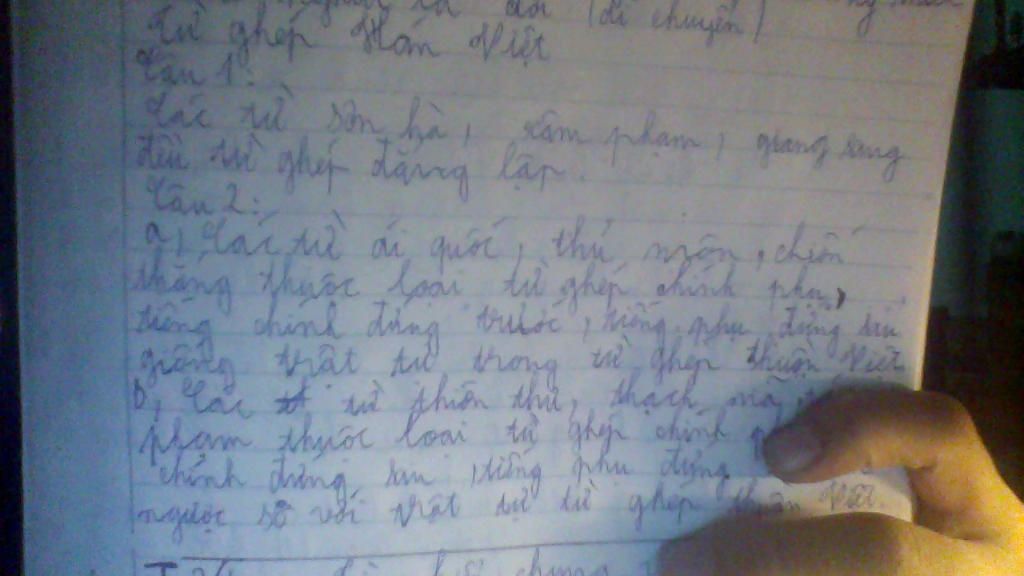 nghĩa là dời (di chuyển)
từ ghép Hán Việt
Câu 1:
Các từ sơn hà, xâm phạm, giang sang
đều từ ghép đẳng lập.
Câu 2:
a, Các từ ái quốc, thủ môn, chiến
thắng thuộc loại từ ghép chính phụ,
tiếng chính đứng trước, tiếng phụ đứng sau
giống trật tự trong từ ghép thuần Việt
b, Các từ thiên thư, thạch mã
phạm thuộc loại từ ghép chính
chính đứng sau, tiếng phụ đứng
ngược so với trật tự từ ghép thuần Việt.